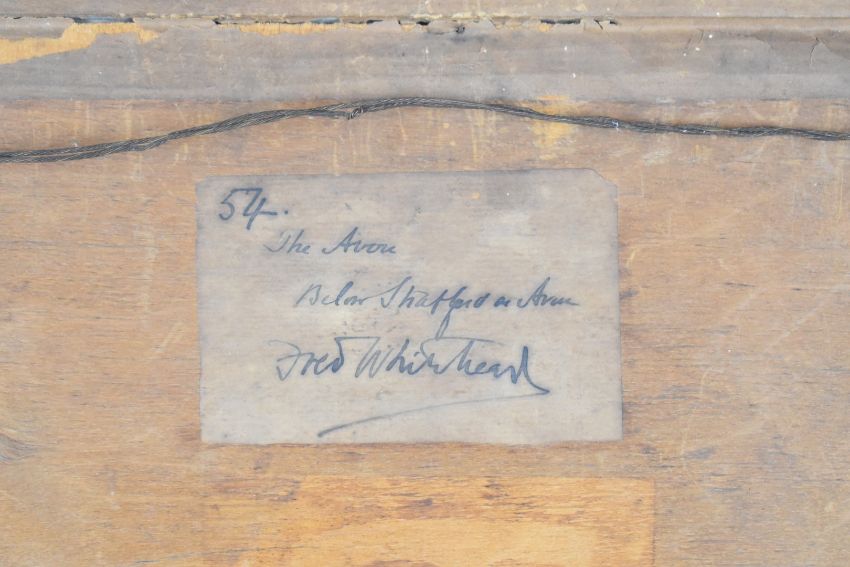 54.
The Avon
Below Stratford on Avon
Fred Whitehead